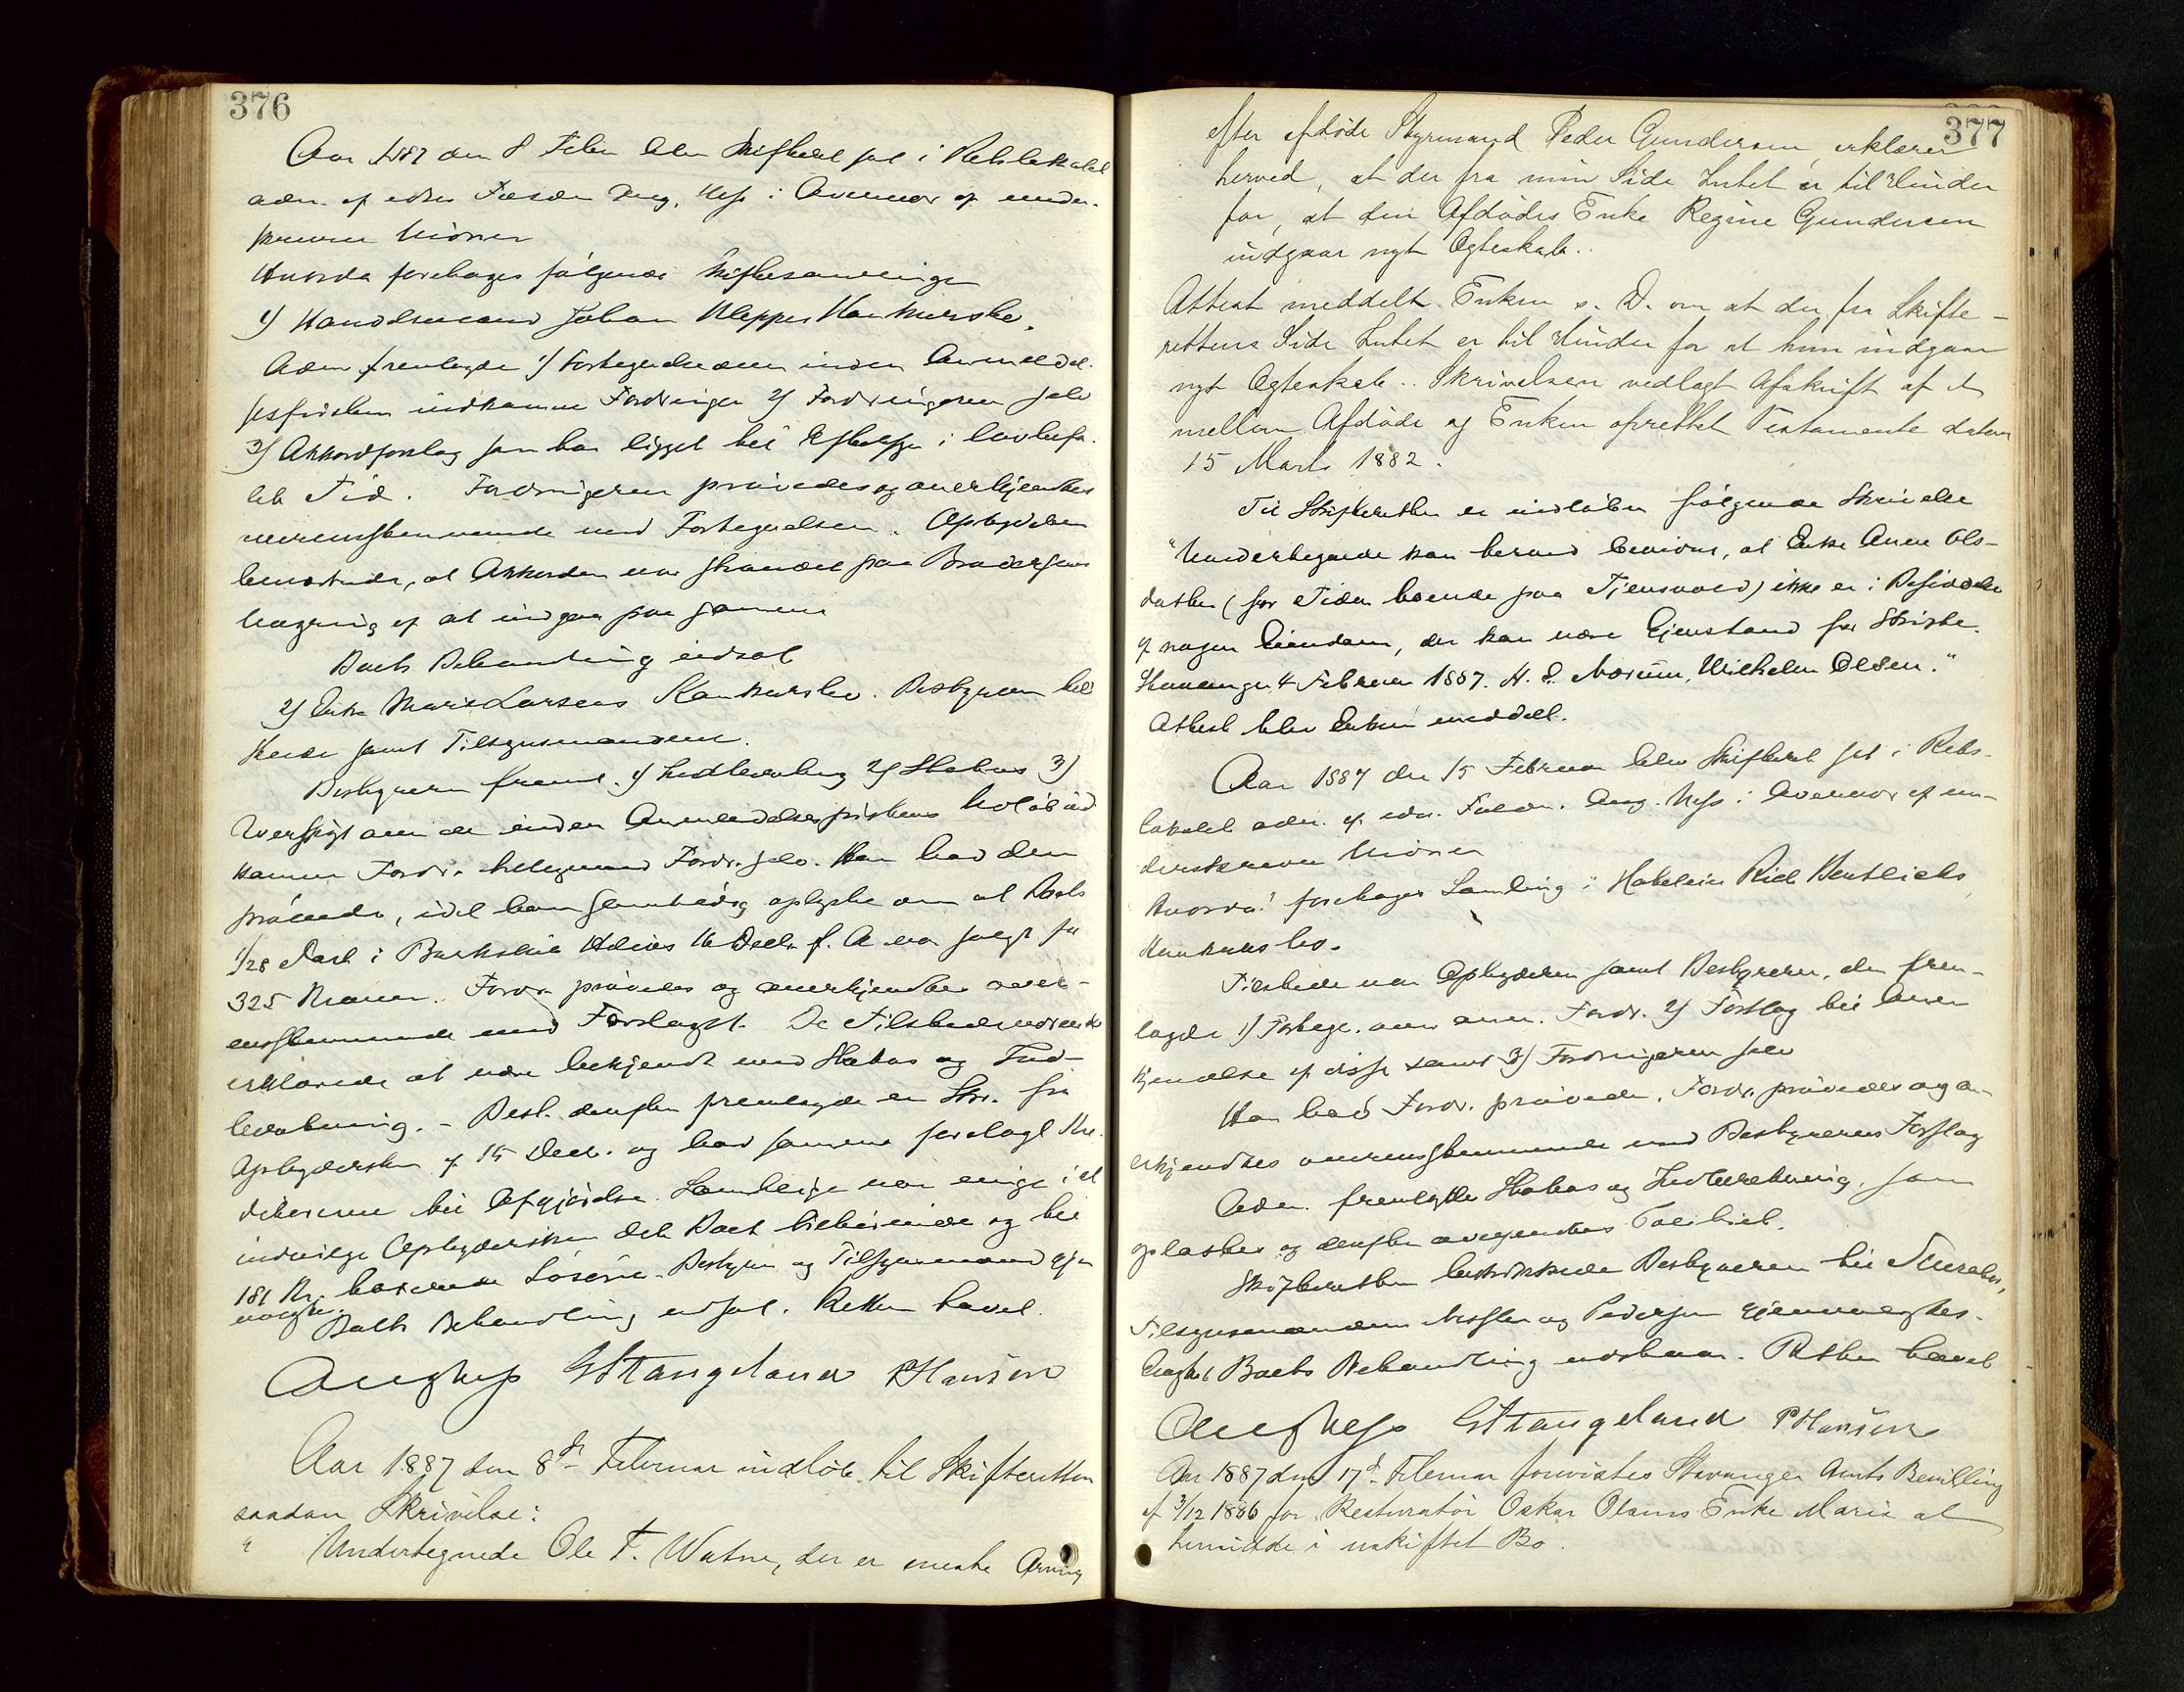 376
Aar 1887 den 8 Febr blev Skifteret sat i Retslokalet
adm. af edsv. Fuldm. Aug. Ness i Overvær af under-
skrevne Vidner
Hvorda foretoges følgende Skiftesamlinger
1) Handelsmand Johan Kleppes Konkursbo.
Adm. fremlagde 1) Fortegnelse over inden Anmeldel-
sesfristen indkomne Fordringer 2) Fordringerne selv
3) Akkordforslag som har ligget til Eftersyn i lovbefa-
let Tid. Fordringerne prøvedes og anerkjendtes
overensstemmende med Fortegnelsen. Opbyderen
bemærkede, at Akkorden var strandet paa Broderens
Vægring af at indgaa paa samme
Boets Behandling udsat
2) Enke Marie Larsens Konkursbo. Bestyreren til
stede samt Tilsynsmændene.
Bestyreren freml. 1) Indberetning 2) Status 3)
Oversigt over de inden Anmeldelsesfristens Udløb ind
komne Fordr. tilligemed Fordr. selv. Han bad dem
prøvede, idet han samtidig oplyste om at Boets
1/28 Part i Barkskib 16 Decbr f. A. var solgt for
325 Kroner. Fordr. prøvedes og anerkjendtes over-
ensstemmende med Forslaget. De Tilstedeværende
erklærede at være bekjendt med Status og Ind-
beretning. - Best. derefter fremlagde en Skr. fra
Opbydersken af 15 Decbr. og bad samme forelagt Kre-
ditorerne til Afgjørelse. Samtlige var enige i at
indvilge Opbydersken det Boet tilhørende og til
181 Kr. taxerede Løsøre. Bestyrer og Tilsynsmænd gjen
valgtes.
Boets Behandling udsat. Retten hævet.
Aug Ness G Stangeland P Hansen
Aar 1887 den 8de Februar indløb til Skifteretten
saadan Skrivelse:
" Undertegnede Ole T. Watne, der er eneste Arving
377
efter afdøde Styrmand Peder Gundersen, erklærer
herved, at der fra min Side Intet er til Hinder
for, at den Afdødes Enke Regine Gundersen
indgaar nyt Ægteskab..
Attest meddelt Enken s. D. om at der fra Skifte-
rettens Side Intet er til Hinder for at hun indgaar
nyt Ægteskab.. Skrivelsen vedlagt Afskrift af et
mellem Afdøde og Enken oprettet Testamente dateret
15 Marts 1882.
Til Skifteretten er indløben følgende Skrivelse
"Undertegnede kan herved bevidne, at Enke Anne Ols-
datter (for Tiden boende paa Tjensvold) ikke er i Besiddelse
af nogen Eiendom, der kan være Gjenstand for Skifte.
Stavanger 4 Februar 1887. H. S. Nærum, Wilhelm Olsen."
Attest blev Enken meddelt.
Aar 1887 den 15 Februar blev Skifteret sat i Rets-
lokalet adm. af edsv. Fuldm. Aug. Ness i Overvær af un-
derskrevne Vidner
Hvorda: foretoges Samling i Hoteleier Bentlichs
Konkursbo.
Tilstede var Opbyderen samt Bestyreren, der frem-
lagde 1) Fortegn. over anm. Fordr. 2) Forslag til Aner
kjendelse af disse samt 3) Fordringerne selv
Han bad Fordr. prøvede. Fordr. prøvedes og an-
erkjendtes overensstemmende med Bestyrerens Forslag
Adm. fremlagde Status og Indberetning, som
oplæstes og derefter
Skifteretten beskikkede Bestyreren til
Tilsynsmændene og Pedersen gjenvalgtes.
Boets Behandling udstaar. Retten hævet
Aug Ness G Stangeland P Hansen
Aar 1887 den 17d. Februar forevistes Stavanger Amts Bevilling
af 3/12 1886 for Restauratør Oskar Olsens Enke Marie at
hensidde i uskiftet Bo.